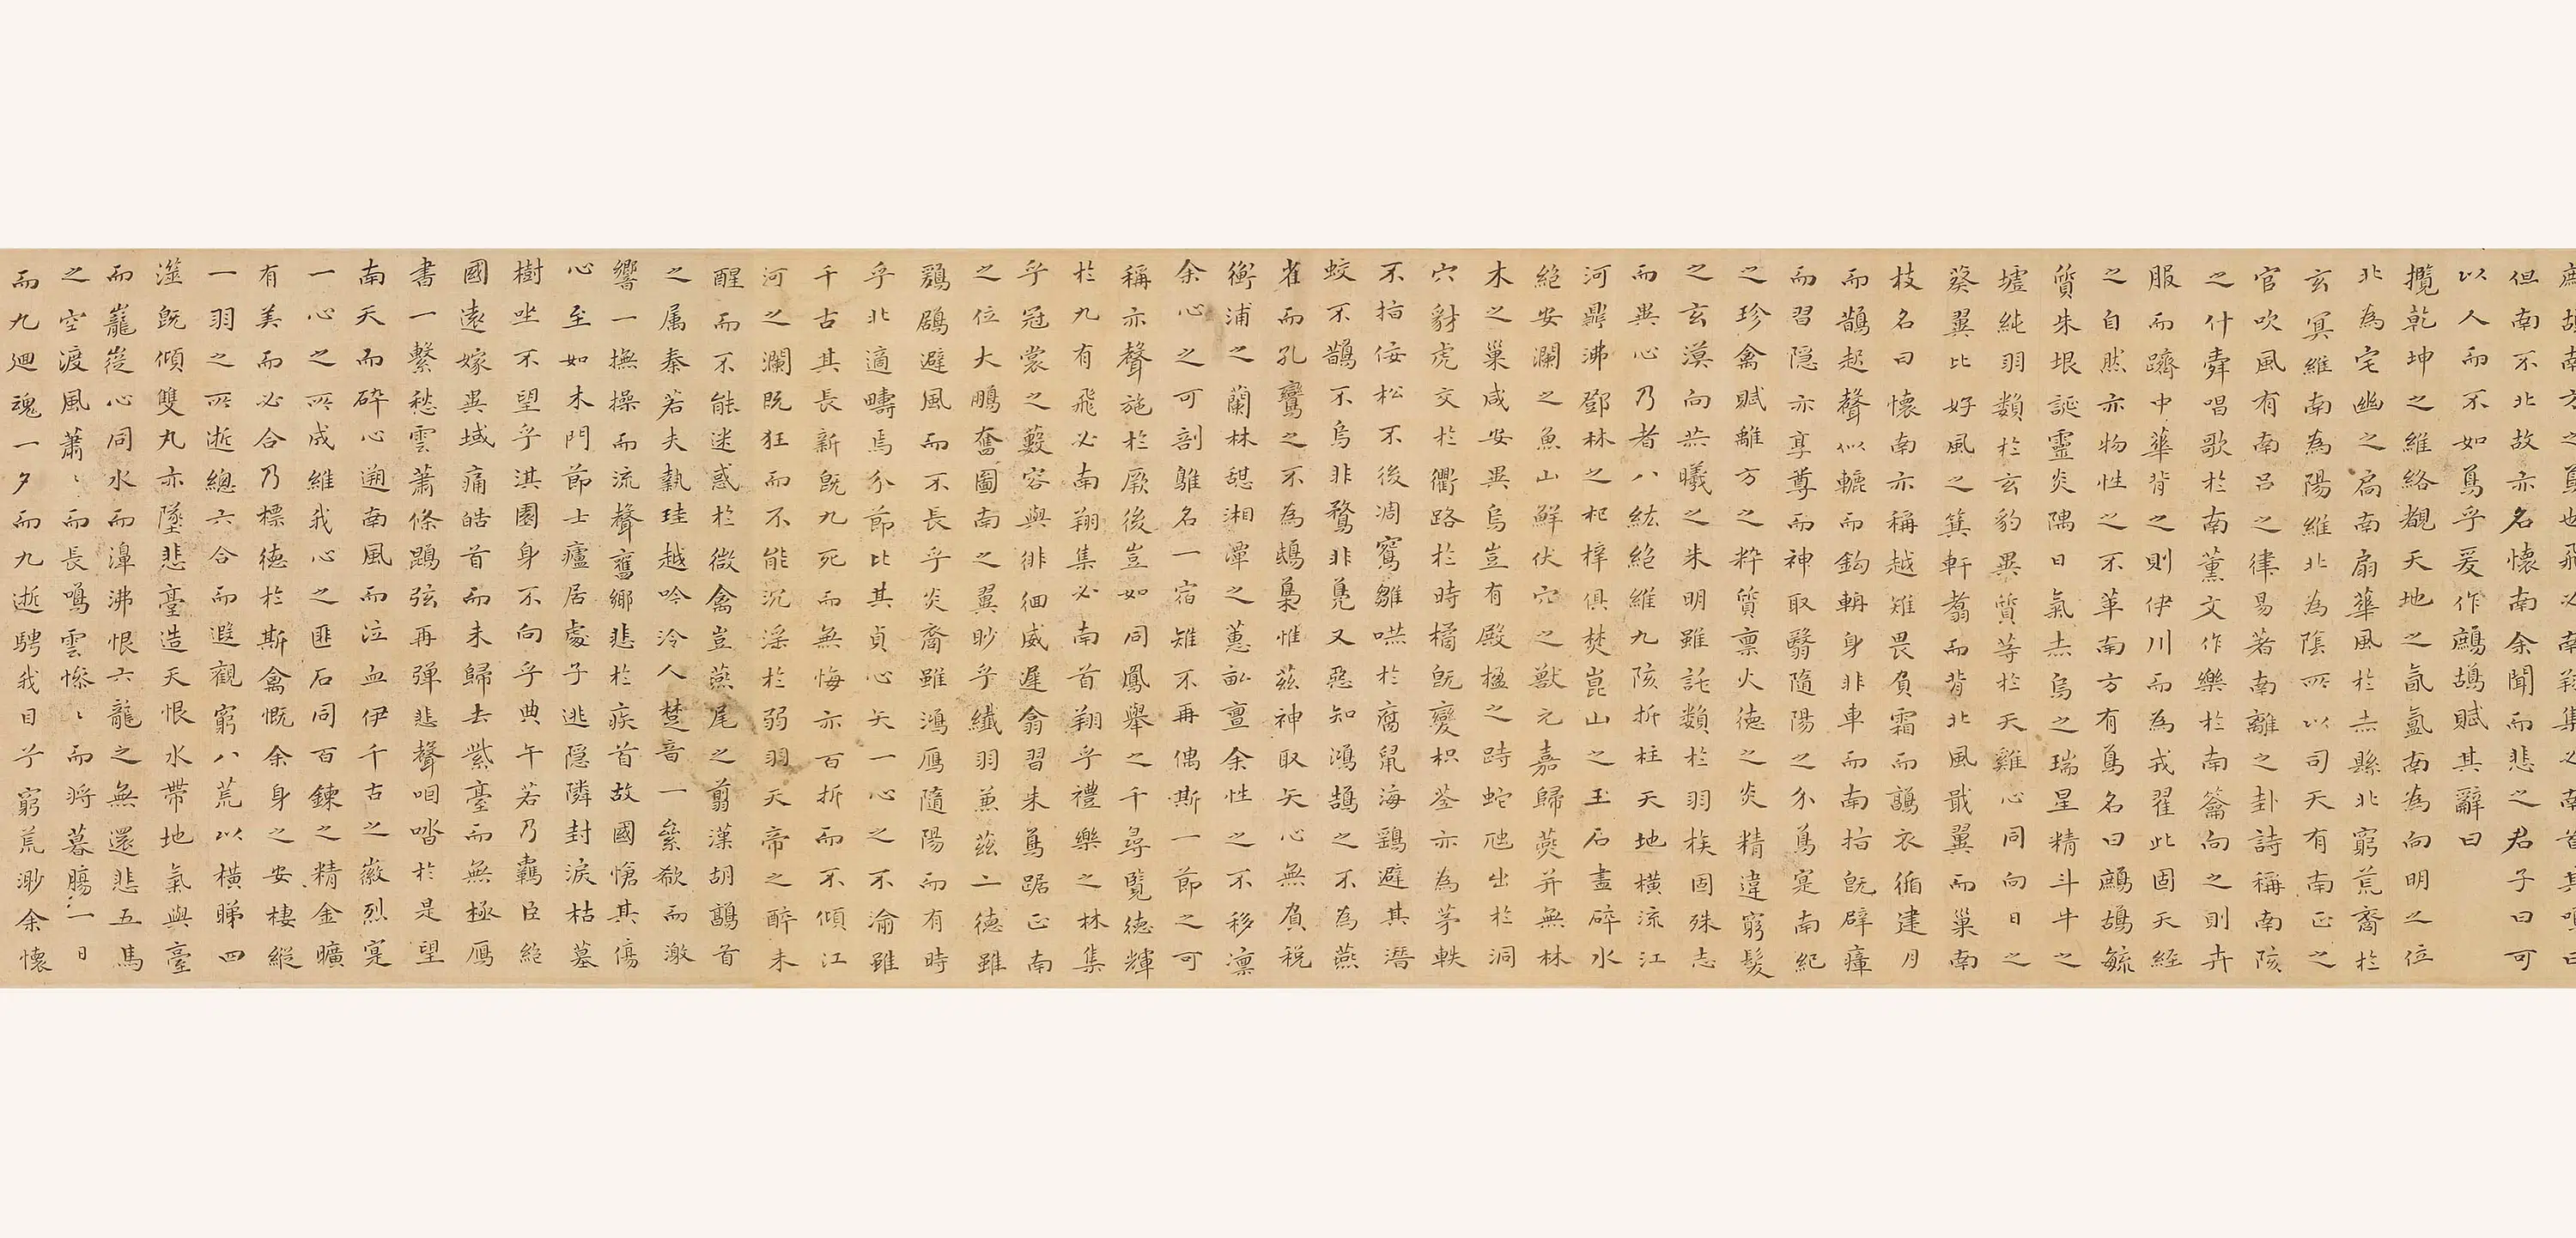 但南不北故亦名懷南余聞而悲之君子曰可
以人而不如鳥乎爰作鷓鴣賦其辭曰
攬乾坤之維絡覩天地之氤氳南為向明之位
北為宅幽之扃南扇華風於炎縣北窮荒裔於
玄冥維南為陽維北為陰所以司天有南正之
官吹風有南呂之律易著南離之卦詩稱南陔
之什舜唱歌於南薰文作樂於南籥向之則卉
服而躋中華背之則伊川而為戎翟此固天經
之自然亦物性之不革南方有鳥名曰鷓鴣毓
質朱垠誕靈炎隅日氣炎烏之瑞星精斗牛之
墟純羽類於玄豹異質等於天雞心同向日之
葵翼比好風之箕軒翥而背北風戢翼而巢南
枝名曰懷南亦稱越雉畏負霜而鷫衣循建月
而鵲起聲似轆而鈎輈身非車而南指既辟瘴
而習隱亦享尊而神取翳隨陽之介鳥寔南紀
之珍禽賦離方之粹質禀火德之炎精違窮髮
之玄漠向炎曦之朱明雖託類於羽族固殊志
而異心乃者八紘絕維九陔折柱天地橫流江
河鼎沸鄧林之杞梓俱焚崑山之玉石盡碎水
絕安瀾之魚山鮮伏穴之獸元嘉歸燕并無林
木之巢咸安異烏豈有殿楹之跱蛇虺出於洞
穴豺虎交於衢路於時橘既變枳荃亦為茅軼
不指佞松不後凋鴛雛哄於腐鼠海鷄避其潛
蛟不鵲不烏非鶩非鳧又惡知鴻鵠之不為燕
雀而孔鸞之不為鴟梟惟茲神取矢心無貳稅
衡浦之蘭林憩湘潭之蕙畝亶余性之不移凜
余心之可剖雖名一宿雉不再偶斯一節之可
稱亦聲施於厥後豈如同鳳舉之千尋覽德輝
於九有飛必南翔集必南首翔乎禮樂之林集
乎冠裳之藪容與徘徊威遲翕習朱鳥踞正南
之位大鵬奮圖南之翼眇乎纖羽兼茲二德雖
鷄鶋避風而不長乎炎裔雖鴻鴈隨陽而有時
乎北適疇焉分節比其貞心矢一心之不渝雖
千古其長新既九死而無悔亦百折而不傾江
河之瀾既狂而不能沉淫於弱羽天帝之醉未
醒而不能迷惑於微禽豈燕尾之翦漢胡鷮首
之屬秦若夫執珪越吟泠人楚音一絫欷而激
響一撫操而流聲舊鄉悲於疾首故國愴其傷
心至如木門節士廬居處子逃隱隣封淚枯墓
樹坐不望乎淇園身不向乎典午若乃羈臣絕
國遠嫁異域痛皓首而未歸去紫臺而無極鴈
書一繫愁雲蕭條鵾弦再彈悲聲咱嘈於是望
南天而碎心遡南風而泣血伊千古之徽烈寔
一心之所成維我心之匪石同百鍊之精金曠
有美而必合乃標德於斯禽慨余身之安棲縱
一羽之所逝總六合而遐觀窮八荒以橫睇四
滋既傾雙丸亦墜悲臺造天恨水帶地氣與臺
而巃嵸心同水而滭沸恨六龍之無還悲五馬
之空渡風蕭〻而長鳴雲慘〻而將暮腸一日
而九迴魂一夕而九逝騁我目乎窮荒渺余懷